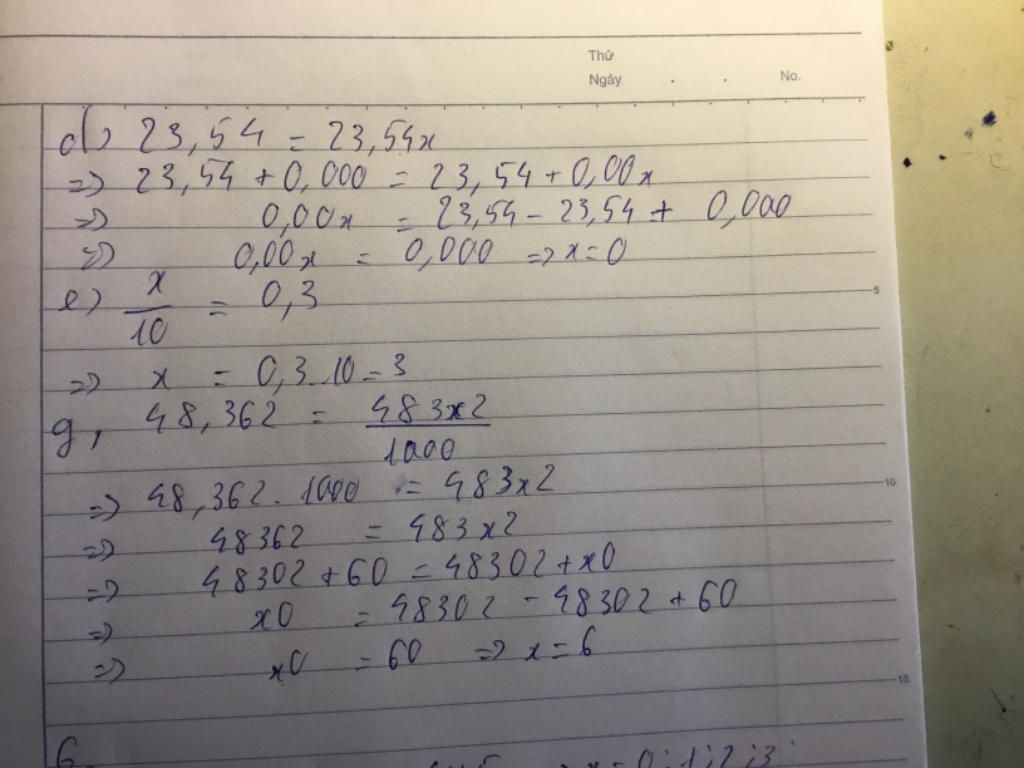 Thứ
Ngày . . No.
d) 23,54 = 23,54x
=> 23,54 + 0,000 = 23,54 + 0,00x
=> 0,00x = 23,54 - 23,54 + 0,000
=> 0,00x = 0,000 => x = 0
e) x/10 = 0,3
5
=> x = 0,3.10 = 3
g, 48,362 = 483x2/1000
=> 48,362.1000 = 483x2
10
=> 48362 = 483x2
=> 48302 + 60 = 48302 + x0
=> x0 = 48302 - 48302 + 60
=> x0 = 60 => x = 6
15
6
x = 0;1;2;3;